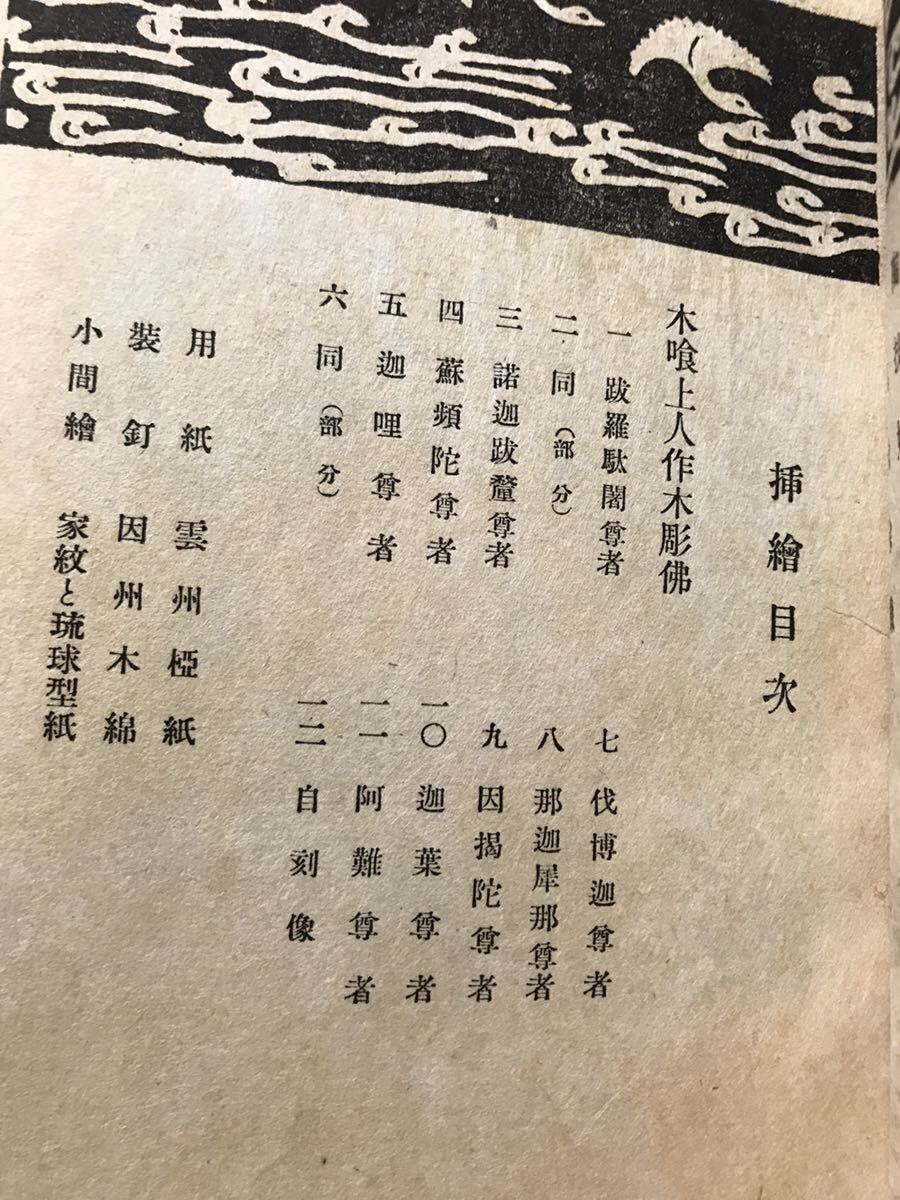 挿繪目次
木喰上人作木彫佛
一 跋羅駄闍尊者
二 同（部分）
三 諾迦跋釐尊者
四 蘇頻陀尊者
五 迦哩尊者
六 同（部分）
七 伐博迦尊者
八 那迦犀那尊者
九 因揭陀尊者
一〇 迦葉尊者
一一 阿難尊者
一二 自刻像
用紙 雲州椏紙
裝釘 因州木綿
小間繪 家紋と琉球型紙